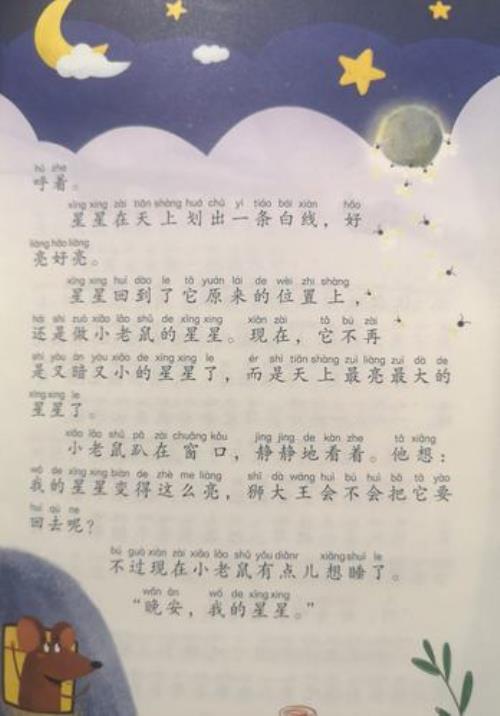 hū zhe
呼着。
xīng xing zài tiān shàng huá chū yì tiáo bái xiàn hǎo
星星在天上划出一条白线，好
liàng hǎo liàng
亮好亮。
xīng xing huí dào le tā yuán lái de wèi zhi shàng
星星回到了它原来的位置上，
hái shi zuò xiǎo lǎo shǔ de xīng xing xiàn zài tā bú zài
还是做小老鼠的星星。现在，它不再
shì yòu àn yòu xiǎo de xīng xing le ér shì tiān shàng zuì liàng zuì dà de
是又暗又小的星星了，而是天上最亮最大的
xīng xing le
星星了。
xiǎo lǎo shǔ pā zài chuāng kǒu jìng jìng de kàn zhe tā xiǎng
小老鼠趴在窗口，静静地看着。他想：
wǒ de xīng xing biàn de zhè me liàng shī dà wáng huì bú huì bǎ tā yào
我的星星变得这么亮，狮大王会不会把它要
huí qù ne
回去呢？
bú guò xiàn zài xiǎo lǎo shǔ yǒu diǎnr xiǎng shuì le
不过现在小老鼠有点儿想睡了。
wǎn ān wǒ de xīng xing
“晚安，我的星星。”